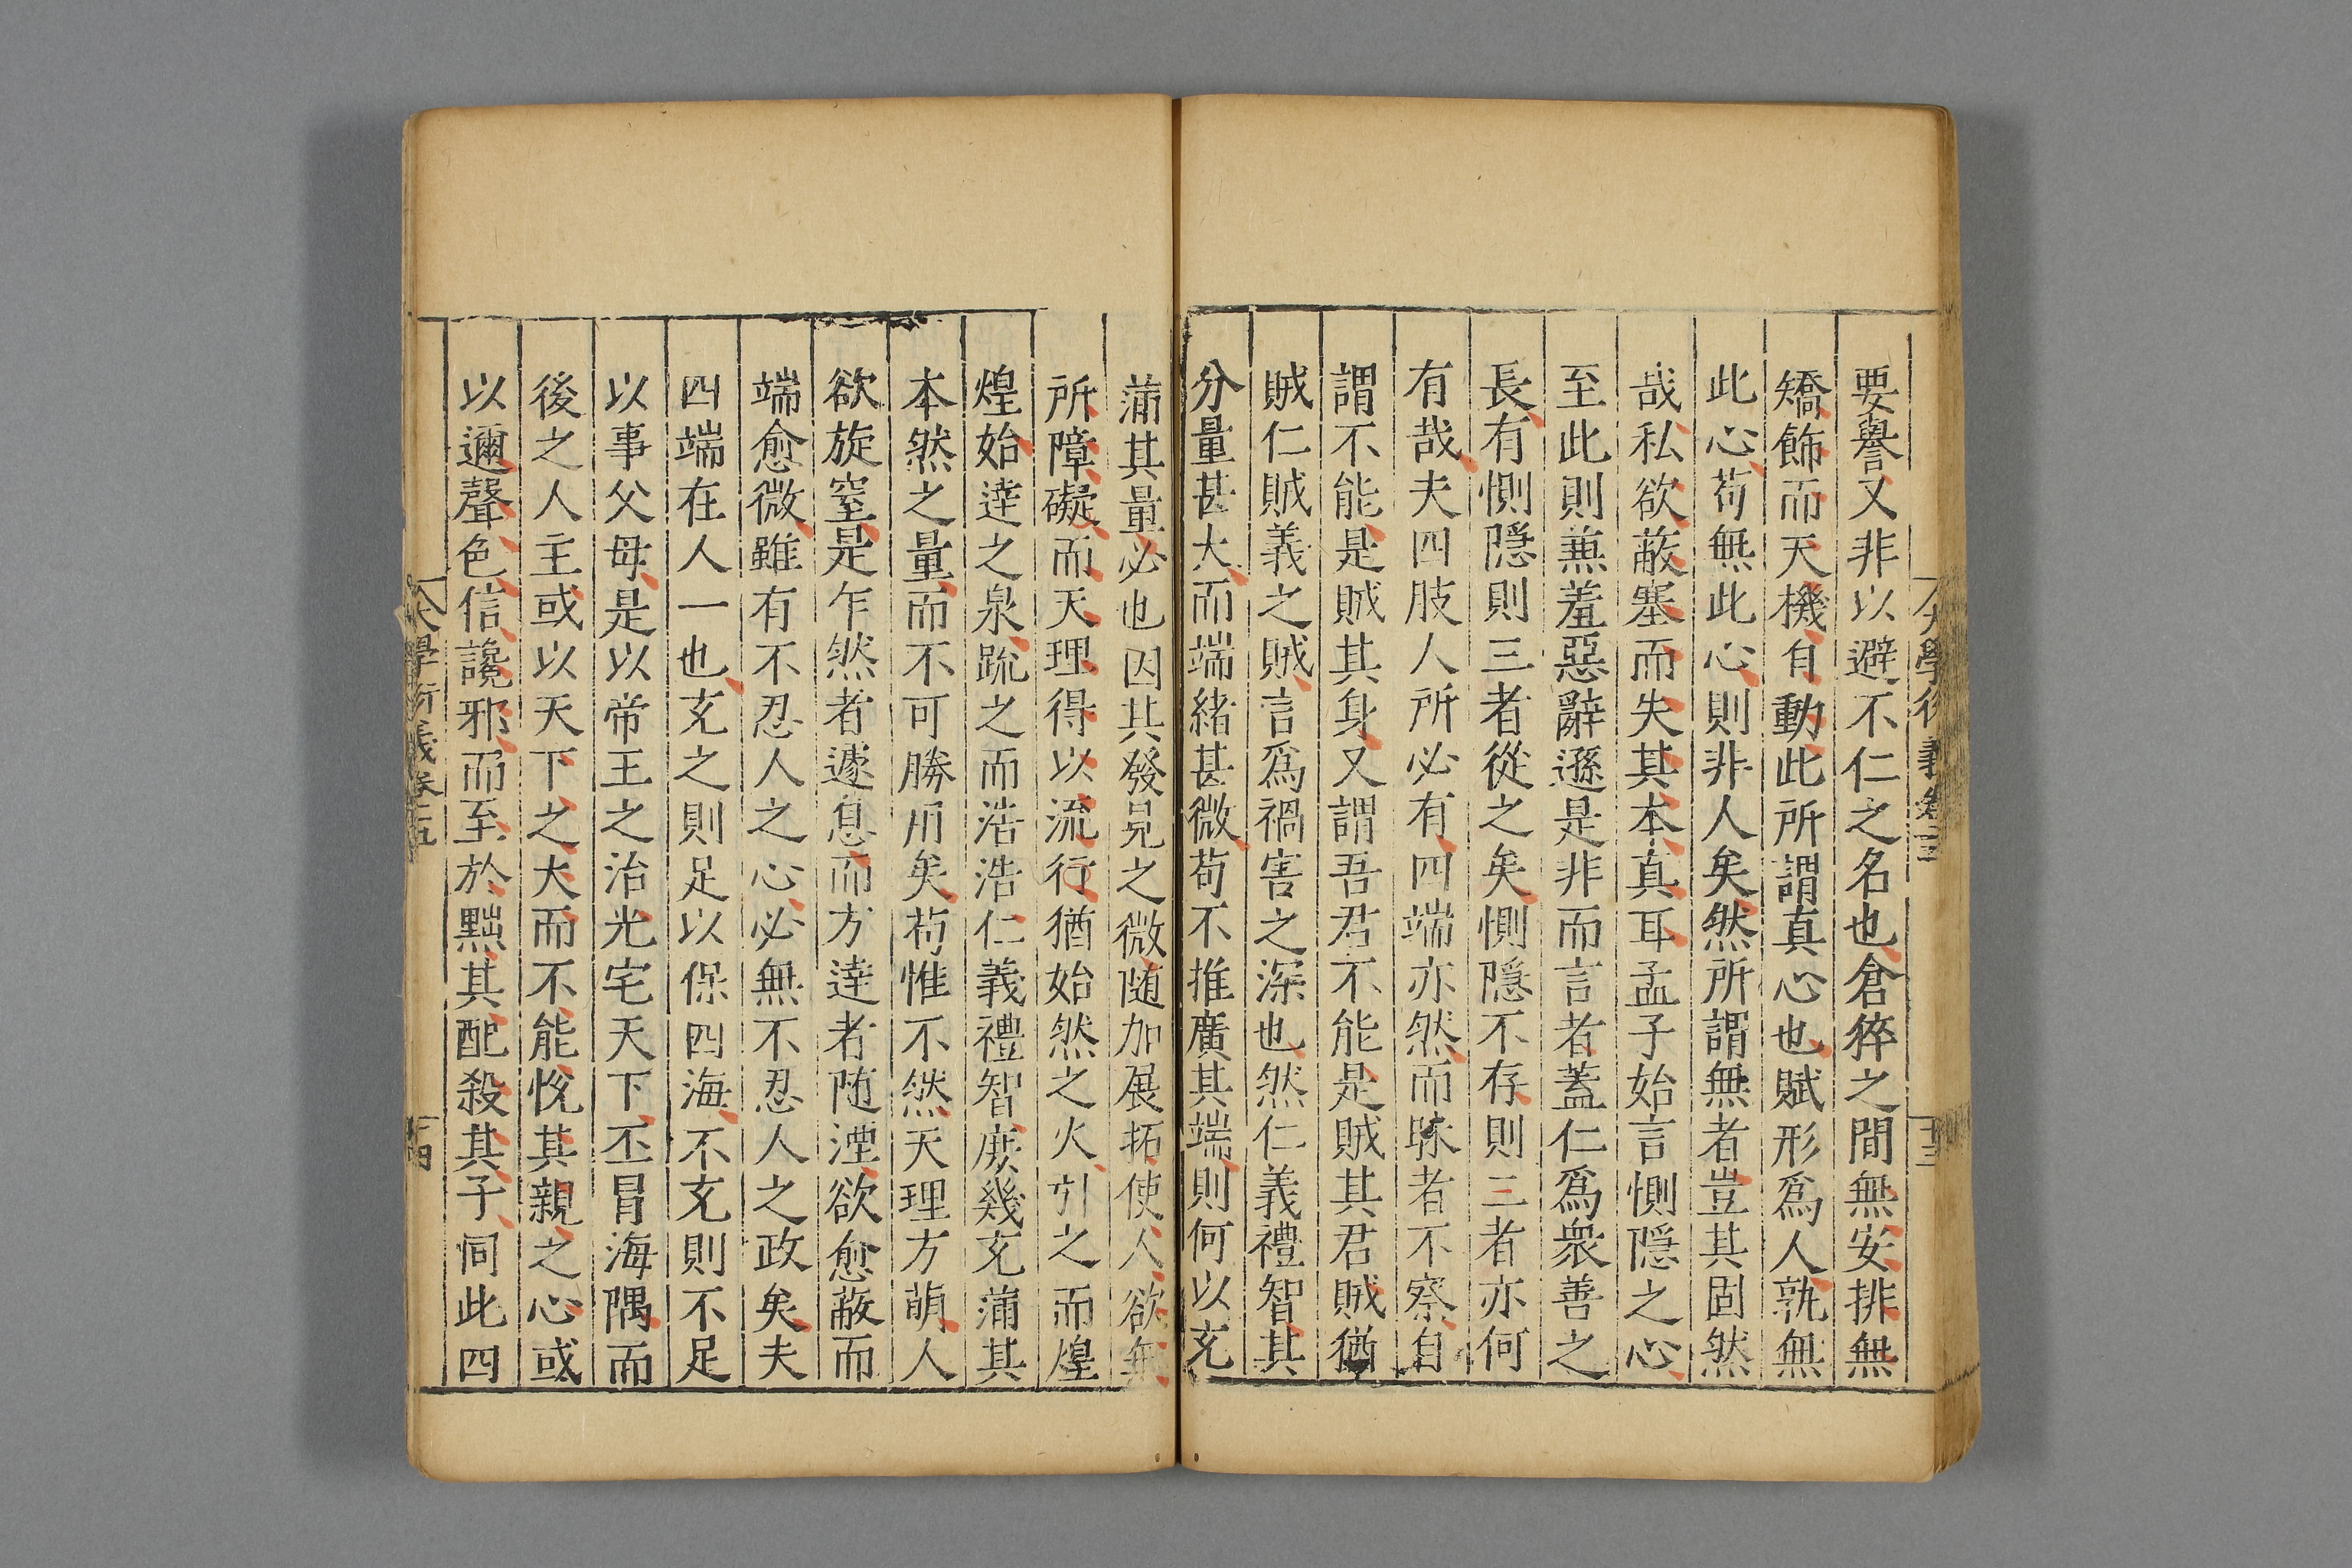 要譽又非以避不仁之名也倉猝之間無安排無
矯飾而天機自動此所謂真心也賦形爲人孰無
此心苟無此心則非人矣然所謂無者豈其固然
哉私欲蔽塞而失其本真耳孟子始言惻隱之心
至此則兼羞惡辭遜是非而言者蓋仁爲衆善之
長有惻隱則三者從之矣惻隱不存則三者亦何
有哉夫四肢人所必有四端亦然而昧者不察自
謂不能是賊其身又謂吾君不能是賊其君賊猶
賊仁賊義之賊言爲禍害之深也然仁義禮智其
分量甚大而端緒甚微苟不推廣其端則何以充
滿其量必也因其發見之微隨加展拓使人欲無
所障礙而天理得以流行猶始然之火引之而煌
煌始達之泉疏之而浩浩仁義禮智庶幾充滿其
本然之量而不可勝用矣苟惟不然天理方萌人
欲旋窒是乍然者遽息而方達者随湮欲愈蔽而
端愈微雖有不忍人之心必無不忍人之政矣夫
四端在人一也充之則足以保四海不充則不足
以事父母是以帝王之治光宅天下丕冒海隅而
後之人主或以天下之大而不能悅其親之心或
以邇聲色信讒邪而至於黜其配殺其子同此四
大學衍義卷五
十四